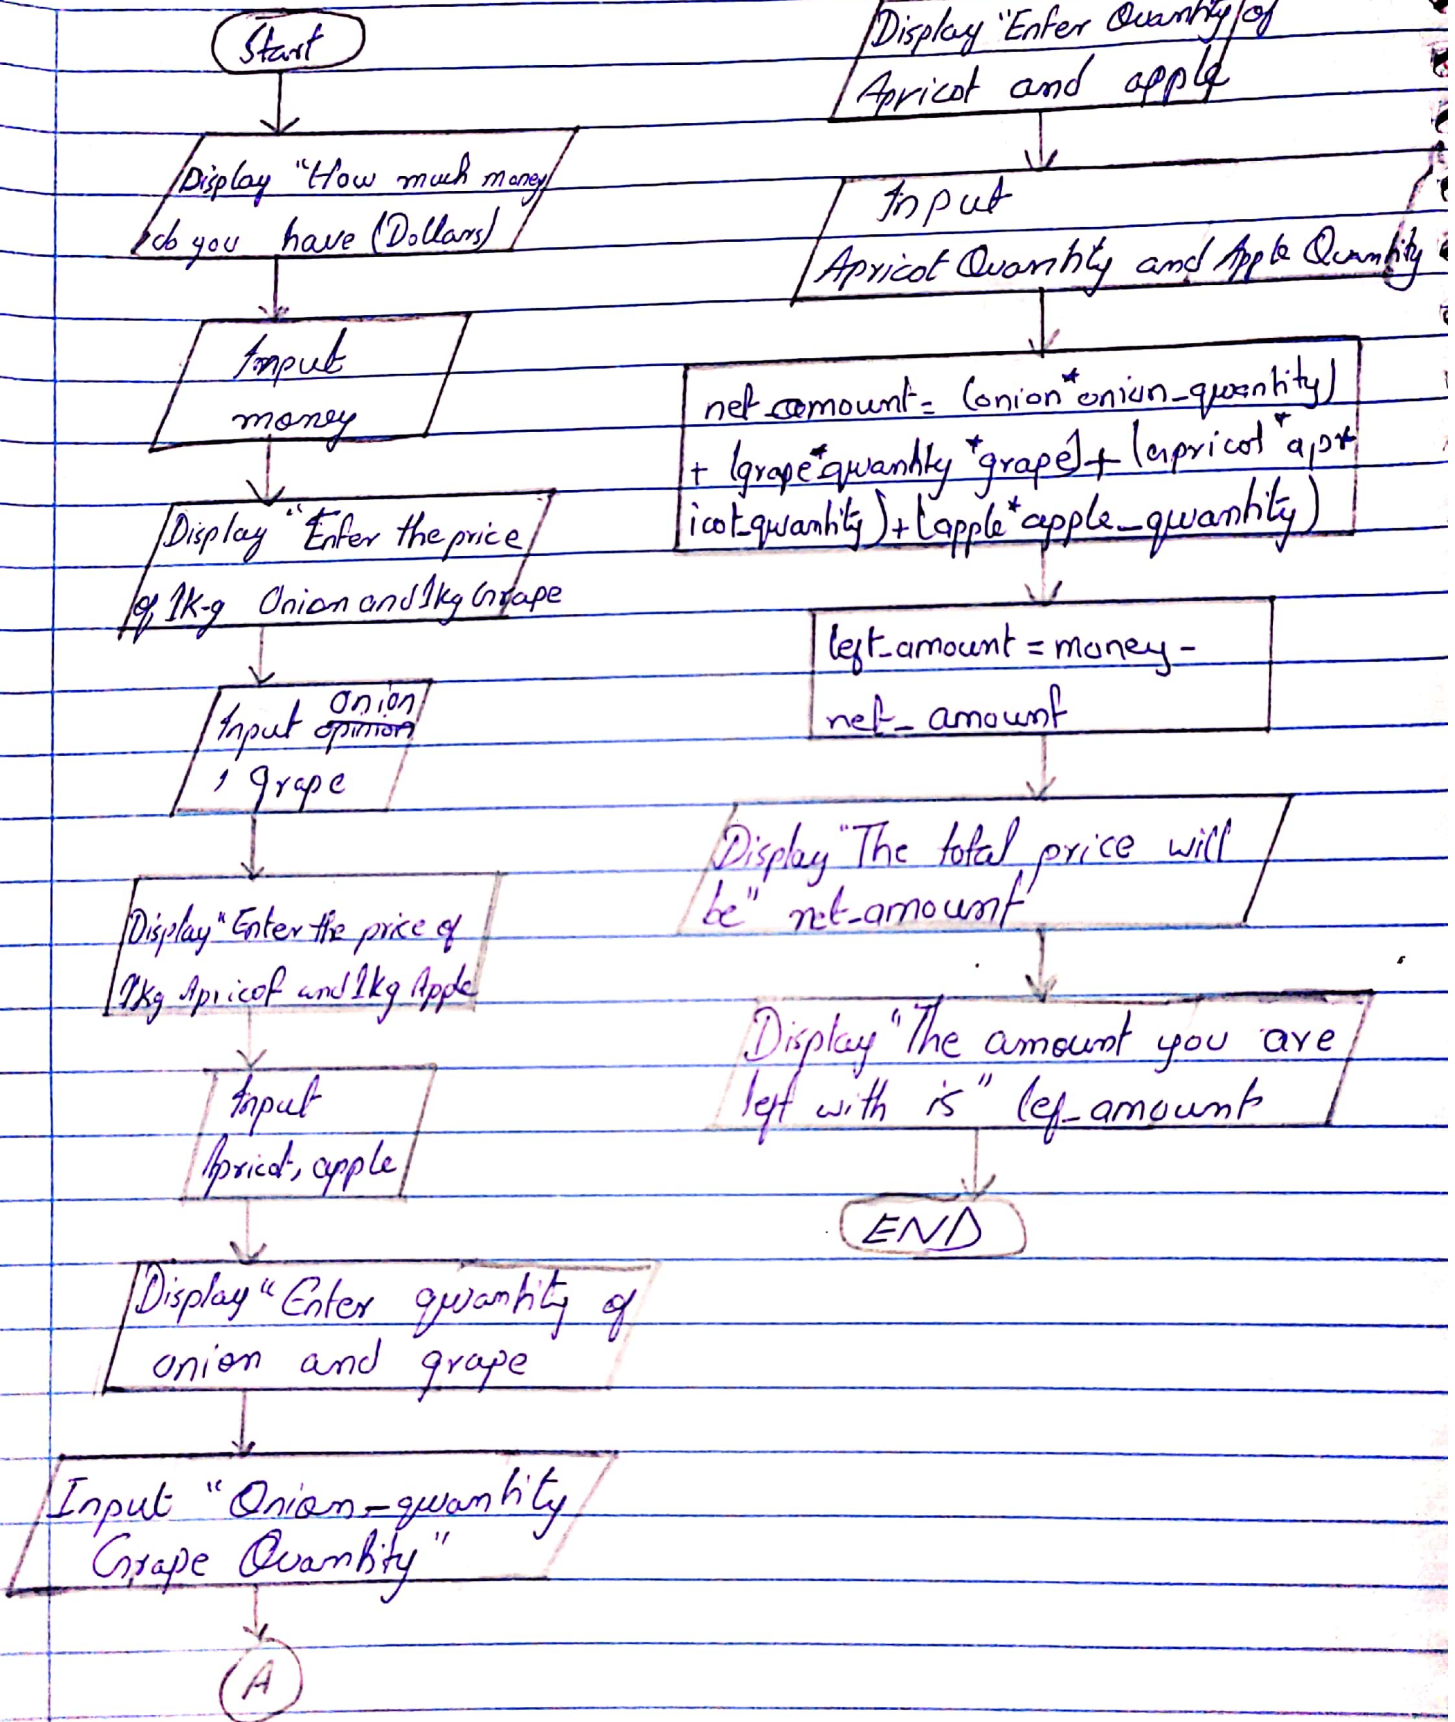 Start
Display "How much money
do you have (Dollars)
Input
money
Display "Enter the price
of 1K-g Onion and 1kg Grape
Onion
Input opinion
, grape
Display "Enter the price of
1kg Apricot and 1kg Apple
Input
Apricot, apple
Display "Enter quantity of
onion and grape
Input "Onion-quantity
Grape Quantity"
A
Display "Enter Quantity of
Apricot and apple
Input
Apricot Quantity and Apple Quantity
net_amount = (onion*onion_quantity)
+ (grape*quantity *grape) + (apricot * apr
icot_quantity) + (apple*apple_quantity)
left_amount = money -
net_ amount
Display "The total price will
be" net_amount
Display "The amount you are
left with is" lef_amount
END